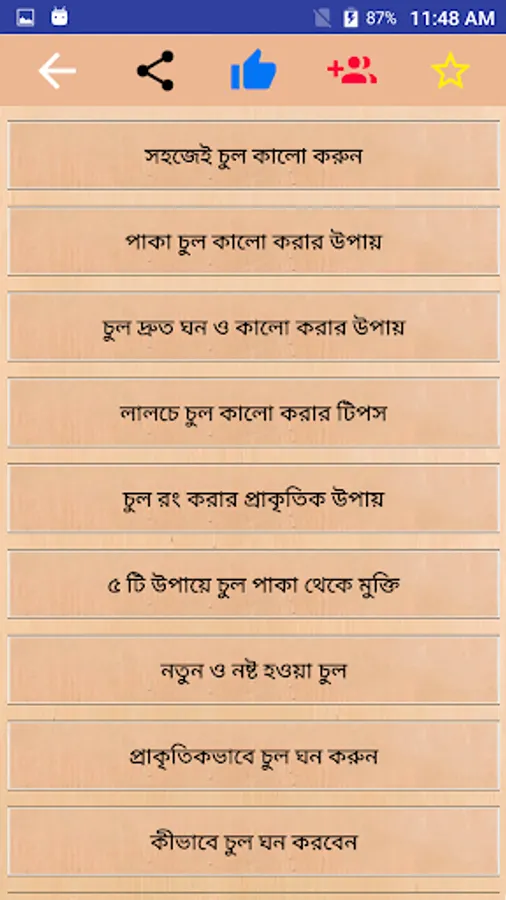 87% 11:48 AM
সহজেই চুল কালো করুন
পাকা চুল কালো করার উপায়
চুল দ্রুত ঘন ও কালো করার উপায়
লালচে চুল কালো করার টিপস
চুল রং করার প্রাকৃতিক উপায়
৫ টি উপায়ে চুল পাকা থেকে মুক্তি
নতুন ও নষ্ট হওয়া চুল
প্রাকৃতিকভাবে চুল ঘন করুন
কীভাবে চুল ঘন করবেন